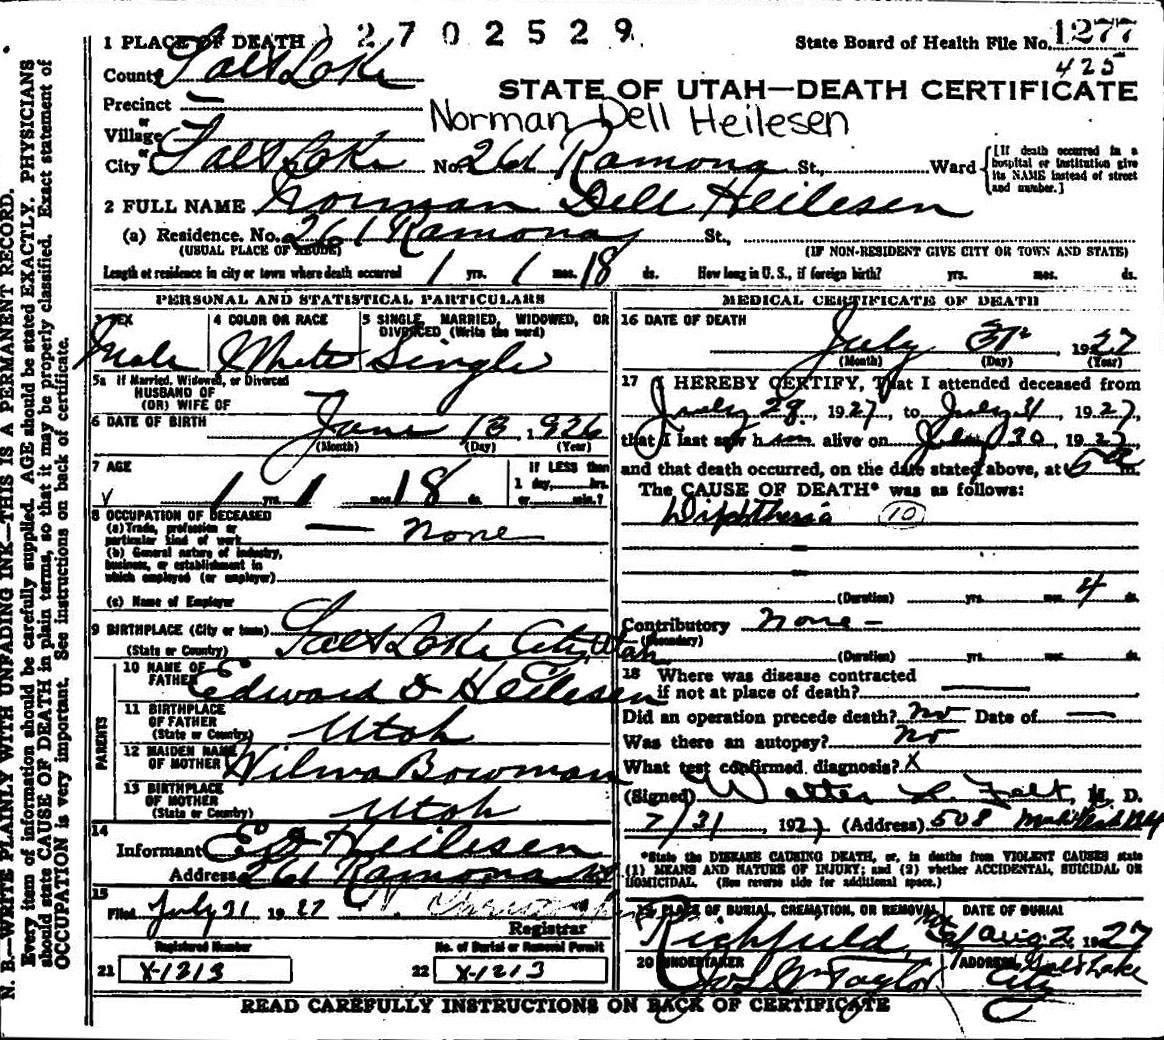 1 PLACE OF DEATH 12702529 State Board of Health File No. 1277
County Salt Lake 425
STATE OF UTAH—DEATH CERTIFICATE
Precinct —
or
Village
Norman Dell Heilesen
or
City Salt Lake No. 261 Ramona St., Ward [If death occurred in a hospital or institution give its NAME instead of street and number.]
2 FULL NAME Norman Dell Heilesen
(a) Residence. No. 261 Ramona St.,
(USUAL PLACE OF ABODE) (IF NON-RESIDENT GIVE CITY OR TOWN AND STATE)
Length of residence in city or town where death occurred 1 yrs. 1 mos. 18 ds. How long in U. S., if foreign birth? yrs. mos. ds.
PERSONAL AND STATISTICAL PARTICULARS
3 SEX
Male
4 COLOR OR RACE
White
5 SINGLE, MARRIED, WIDOWED, OR DIVORCED (Write the word)
Single
5a If Married, Widowed, or Divorced
HUSBAND OF
(OR) WIFE OF
6 DATE OF BIRTH June 13, 1926
(Month) (Day) (Year)
7 AGE
1 yrs. 1 mos. 18 ds.
If LESS than
1 day, hrs.
or min.?
8 OCCUPATION OF DECEASED
(a) Trade, profession or
particular kind of work — none
(b) General nature of industry,
business, or establishment in
which employed (or employer)
(c) Name of Employer
9 BIRTHPLACE (City or town)
(State or Country) Salt Lake City, Utah
PARENTS
10 NAME OF
FATHER Edward D Heilesen
11 BIRTHPLACE
OF FATHER
(State or Country) Utah
12 MAIDEN NAME
OF MOTHER Wilma Bowman
13 BIRTHPLACE
OF MOTHER
(State or Country) Utah
14
Informant E D Heilesen
Address 261 Ramona
15
Filed July 31 1927
Registrar
Registered Number No. of Burial or Removal Permit
21 X-1213 22 X-1213
MEDICAL CERTIFICATE OF DEATH
16 DATE OF DEATH
July 31 1927
(Month) (Day) (Year)
17 I HEREBY CERTIFY, That I attended deceased from
July 28, 1927, to July 31 1927,
that I last saw him alive on July 30, 1927,
and that death occurred, on the date stated above, at 5 a m.
The CAUSE OF DEATH* was as follows:
Diphtheria 10
(Duration) yrs. mos. 4 ds.
Contributory none —
(Secondary)
(Duration) yrs. mos. ds.
18 Where was disease contracted
if not at place of death? —
Did an operation precede death? no Date of —
Was there an autopsy? no
What test confirmed diagnosis? X
(Signed) Walter L. Felt, M. D.
7/31, 1927 (Address) 508
*State the DISEASE CAUSING DEATH, or, in deaths from VIOLENT CAUSES state
(1) MEANS AND NATURE OF INJURY; and (2) whether ACCIDENTAL, SUICIDAL OR
HOMICIDAL. (See reverse side for additional space.)
19 PLACE OF BURIAL, CREMATION, OR REMOVAL
Richfield
DATE OF BURIAL
Aug 2, 1927
20 UNDERTAKER
Jos Wm Taylor
ADDRESS
Salt Lake
City
READ CAREFULLY INSTRUCTIONS ON BACK OF CERTIFICATE
N. B.—WRITE PLAINLY WITH UNFADING INK—THIS IS A PERMANENT RECORD.
Every item of information should be carefully supplied. AGE should be stated EXACTLY. PHYSICIANS
should state CAUSE OF DEATH in plain terms, so that it may be properly classified. Exact statement of
OCCUPATION is very important. See instructions on back of certificate.